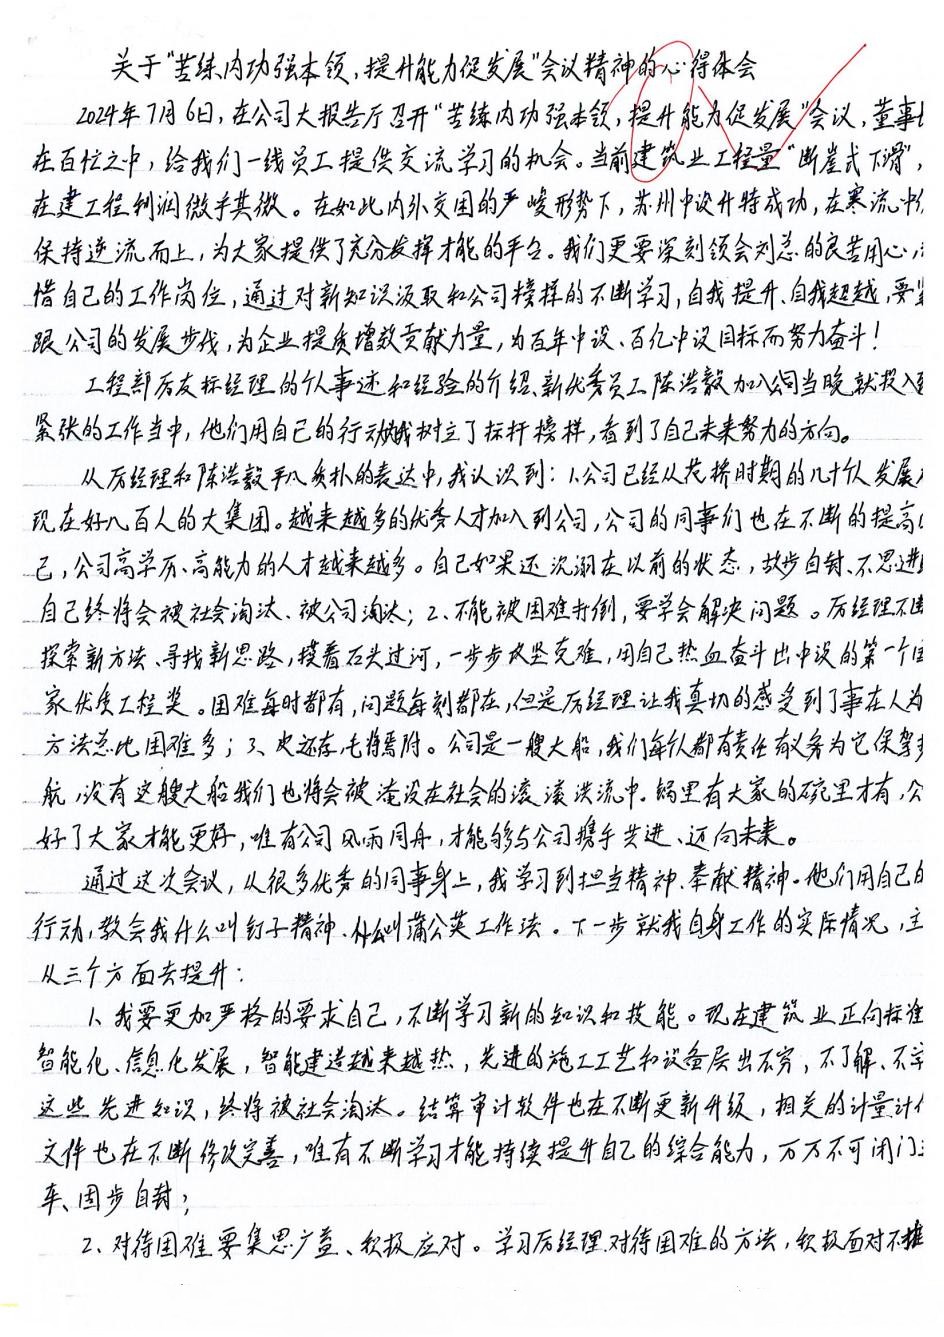 关于“苦练内功强本领,提升能力促发展”会议精神的心得体会
2024年7月6日,在公司大报告厅召开“苦练内功强本领,提升能力促发展”会议,董事
在百忙之中,给我们一线员工提供交流学习的机会。当前建筑业工程量“断崖式下滑”,
在建工程利润微乎其微。在如此内外交困的严峻形势下,苏州中设升特成功,在寒流中
保持逆流而上,为大家提供了充分发挥才能的平台。我们更要深刻领会刘总的良苦用心,
惜自己的工作岗位,通过对新知识汲取和公司榜样的不断学习,自我提升、自我超越,要
跟公司的发展步伐,为企业提质增效贡献力量,为百年中设、百亿中设目标而努力奋斗!
工程部厉友标经理的个人事迹和经验的介绍、新优秀员工陈浩毅加入公司当晚就投入到
紧张的工作当中,他们用自己的行动给我树立了标杆榜样,看到了自己未来努力的方向。
从厉经理和陈浩毅平凡质朴的表达中,我认识到:1、公司已经从花桥时期的几十个人发展
现在好几百人的大集团。越来越多的优秀人才加入到公司,公司的同事们也在不断的提高
己,公司高学历、高能力的人才越来越多。自己如果还沉溺在以前的状态,故步自封、不思进
自己终将会被社会淘汰、被公司淘汰;2、不能被困难打倒,要学会解决问题。厉经理不断
探索新方法、寻找新思路,摸着石头过河,一步步攻坚克难,用自己热血奋斗出中设的第一个国
家优质工程奖。困难每时都有,问题每刻都在,但是厉经理让我真切的感受到了事在人为
方法总比困难多;3、皮还存,毛将焉附。公司是一艘大船,我们每个人都有责任有义务为它保驾
航,没有这艘大船我们也将会被淹没在社会的滚滚洪流中。锅里有大家的碗里才有,公
好了大家才能更好,唯有公司风雨同舟,才能够与公司携手共进、迈向未来。
通过这次会议,从很多优秀的同事身上,我学习到担当精神、奉献精神。他们用自己的
行动,教会我什么叫钉子精神、什么叫蒲公英工作法。下一步就我自身工作的实际情况,主
从三个方面去提升:
1、我要更加严格的要求自己,不断学习新的知识和技能。现在建筑业正向标准
智能化、信息化发展,智能建造越来越热,先进的施工工艺和设备层出不穷,不了解、不学
这些先进知识,终将被社会淘汰。结算审计软件也在不断更新升级,相关的计量计价
文件也在不断修改完善,唯有不断学习才能持续提升自己的综合能力,万万不可闭门
车、固步自封;
2、对待困难要集思广益、积极应对。学习厉经理对待困难的方法,积极面对不推